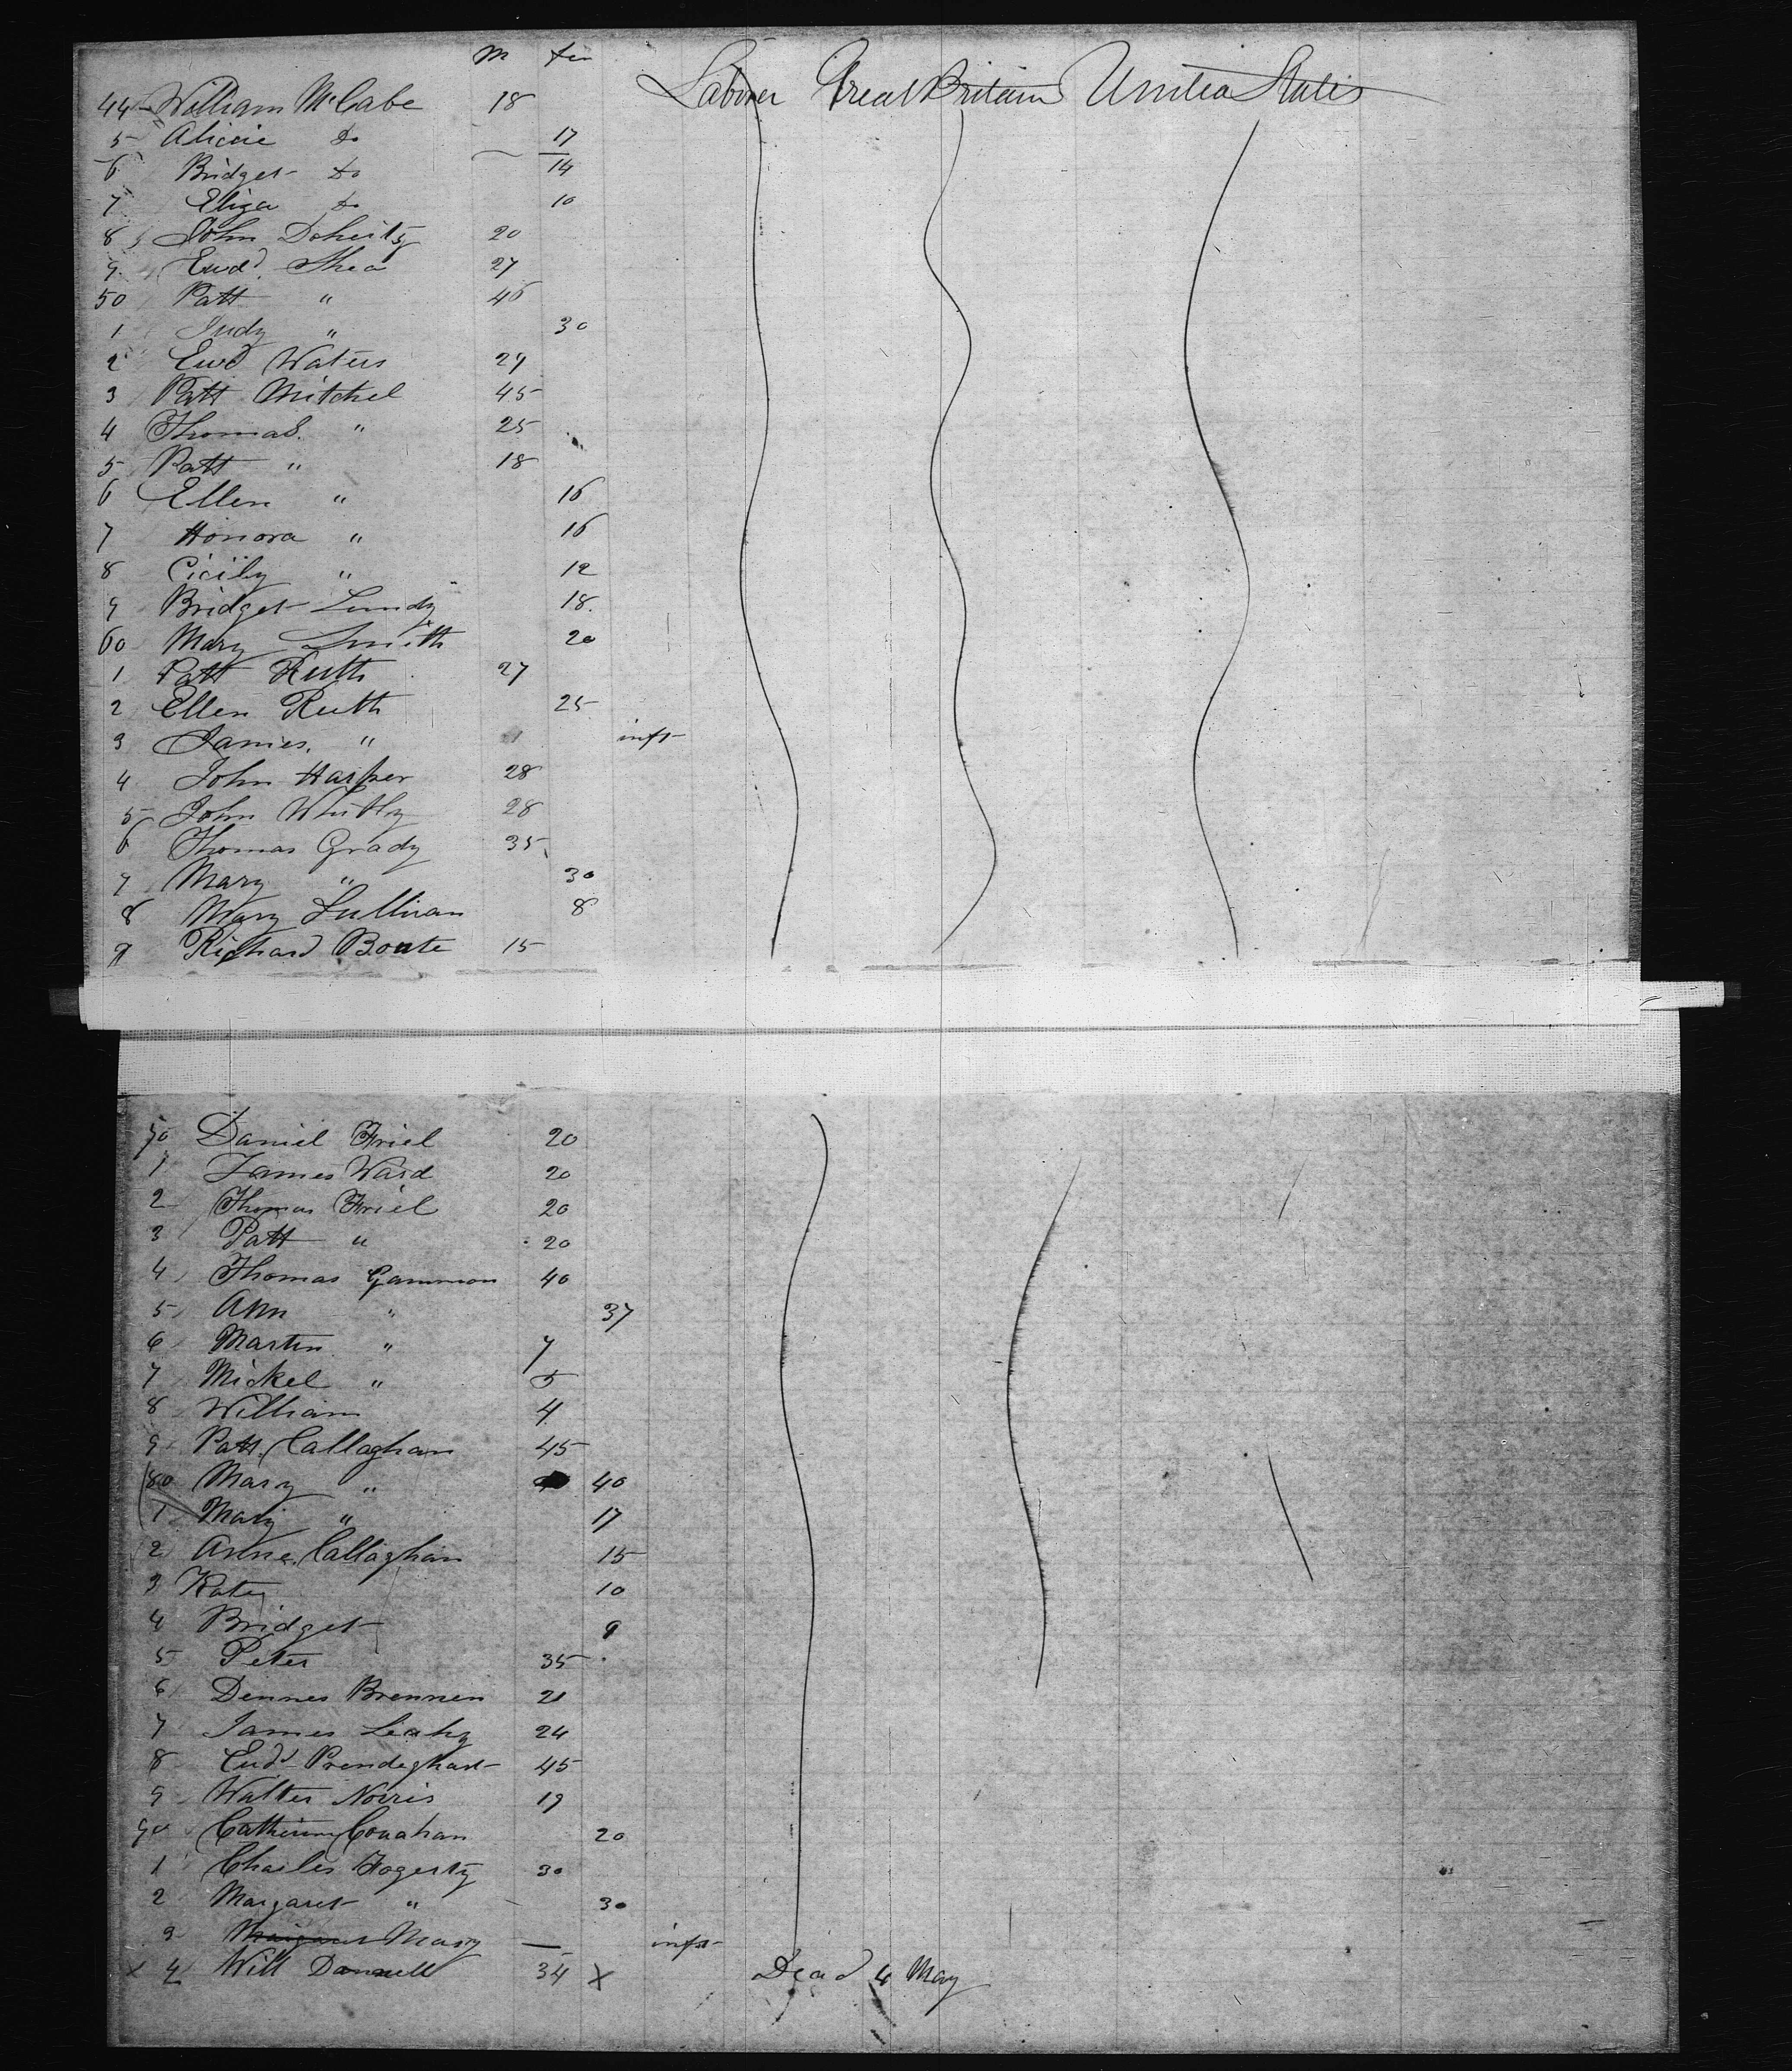 M Fem
44 William McCabe 18 Laborer Great Britain United States
5 Alicie Do 17
6 Bridget Do 14
7 Eliza Do 10
8 John Doherty 20
9 Ewd. Shea 27
50 Patt " 46
1 Judy " 30
2 Ewd Waters 27
3 Patt Mitchel 45
4 Thomas. " 25
5 Patt " 18
6 Ellen " 16
7 Honora " 16
8 Cicily " 12
9 Bridget Lundy 18.
60 Mary Smith 20
1 Patt Ruth 27
2 Ellen Ruth 25
3 James. " inft
4 John Harper 28
5 John Whitly 28
6 Thomas Grady 35
7 Mary " 30
8 Mary Sullivan 8
9 Richard Boute 15
70 Daniel Friel 20
1 James Ward 20
2 Thomas Friel 20
3 Patt " 20
4 Thomas Gammon 40
5 Ann " 37
6 Martin " 7
7 Mickel " 5
8 William 4
9 Patt. Callaghan 45
80 Mary " 40
1 Mary " 17
2 Anne Callaghan 15
3 Katey 10
4 Bridget 9
5 Peter 35
6 Dennes Brennen 21
7 James Leahy 24
8 Ewd Prendeghast 45
9 Walter Norris 19
90 Catherine Conahan 20
1 Charles Fogerty 30
2 Margaret " 30
3 Margaret Mary — inft
x 4 Will Dannell 34 x Dead 4 May